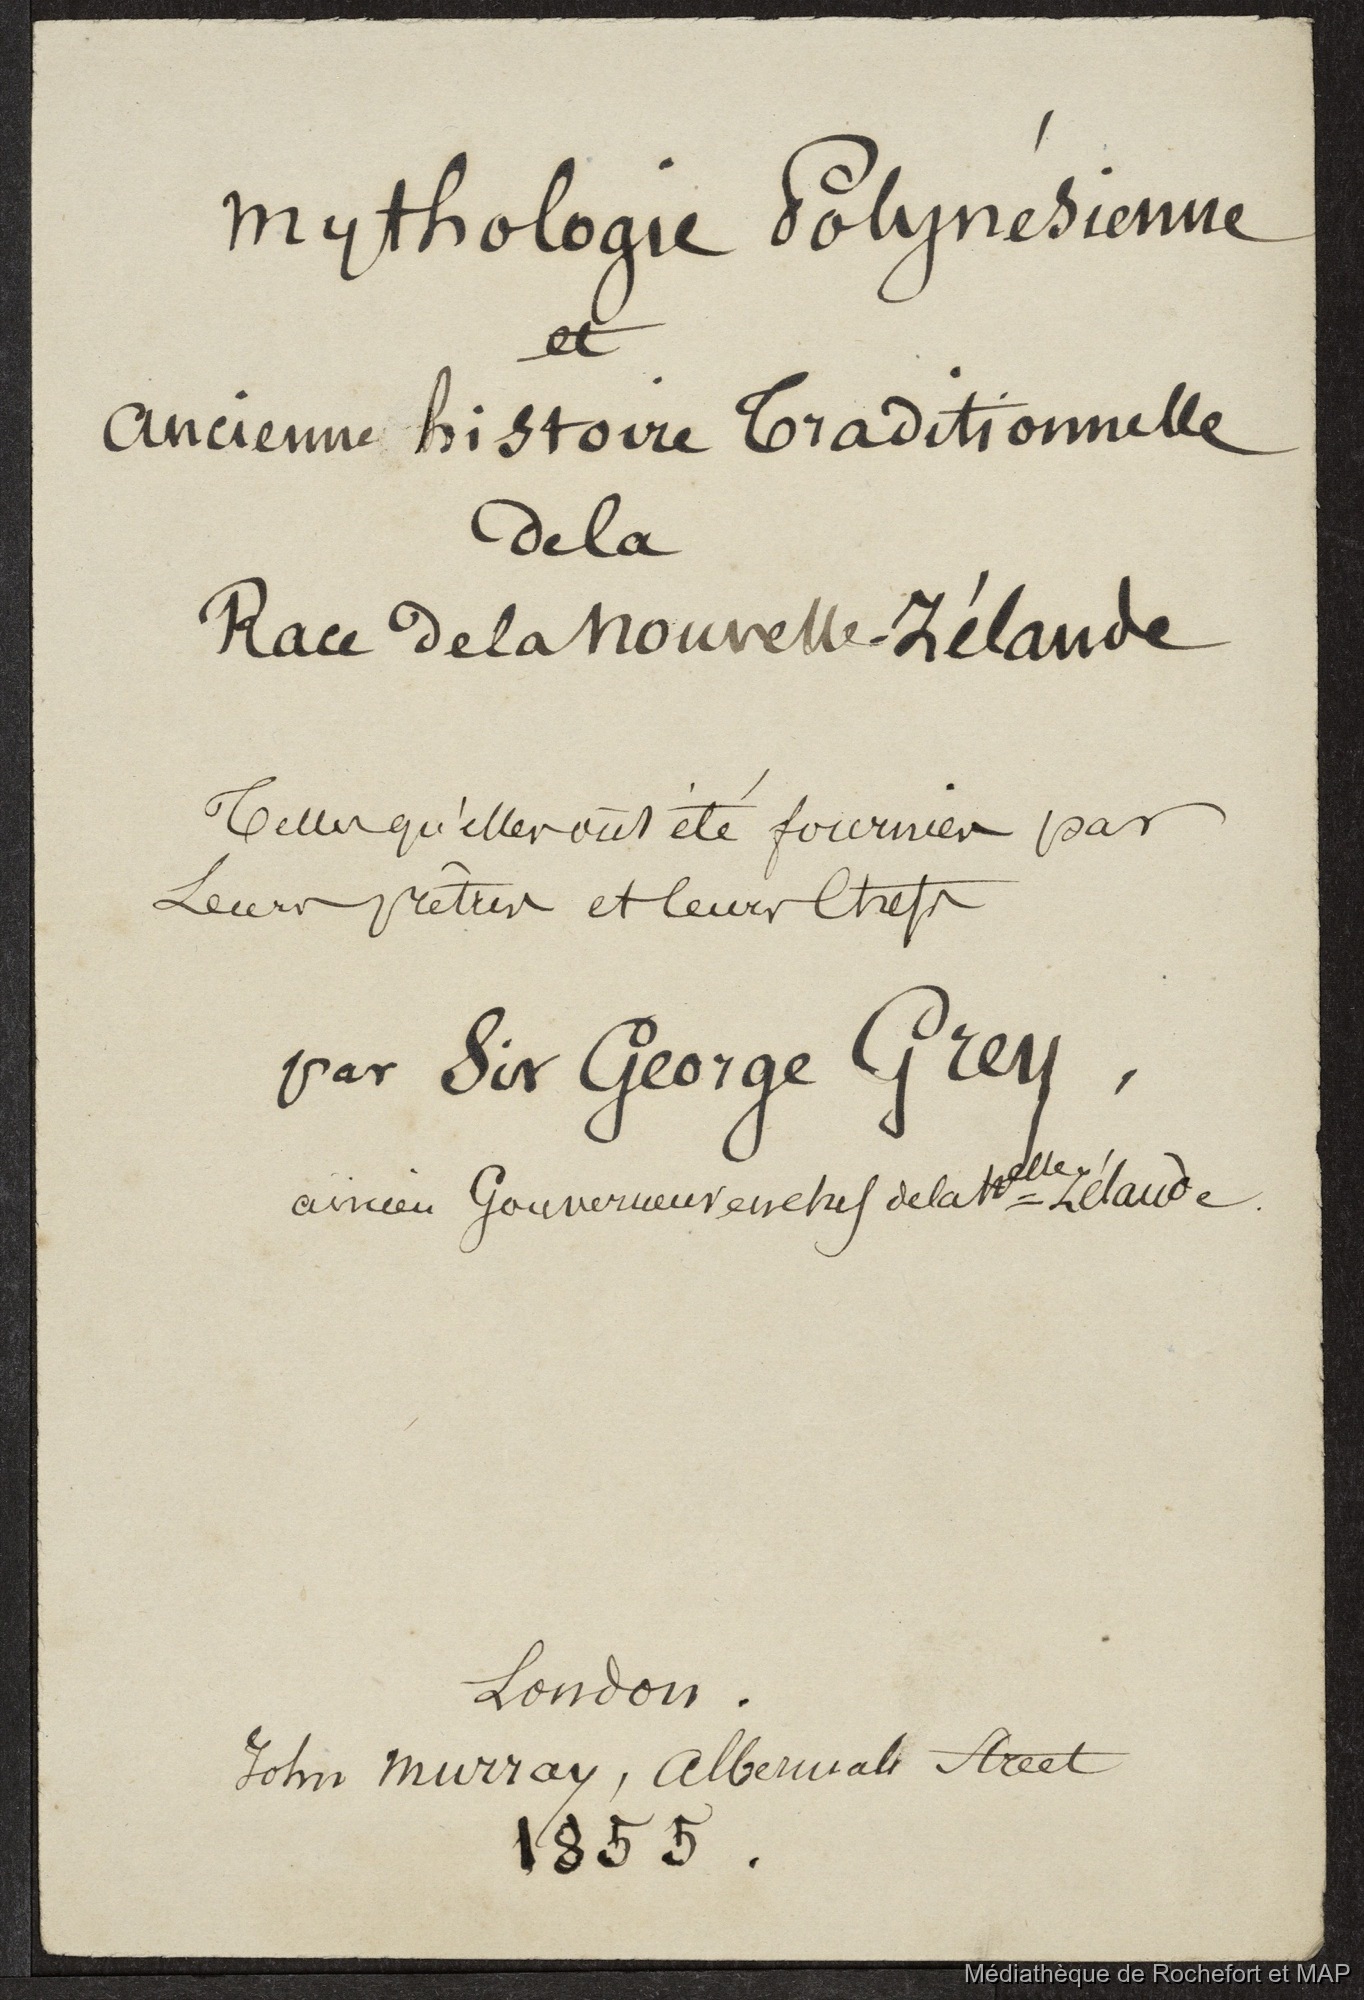 Mythologie Polynésienne
et
ancienne histoire Traditionnelle
de la
Race de la Nouvelle-Zélande
Telles qu'elles ont été fournies par
Leurs prêtres et leurs Chefs
par Sir George Grey,
ancien Gouverneur en chef de la Nelle=Zélande.
London.
John Murray, Albermale Street
1855.
Médiathèque de Rochefort et MAP